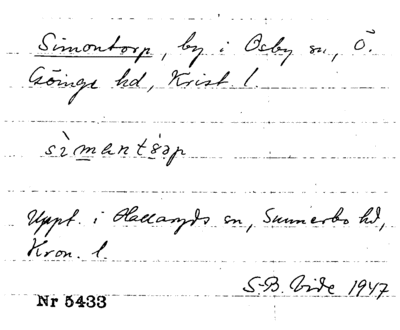 Simontorp, by i Osby sn, Ö.
Göinge hd, Krist l.
sìmantṡəp
Uppt. i Hallaryds sn, Sunnerbo hd,
Kron. l.
S-B. Vide 1947
Nr 5433